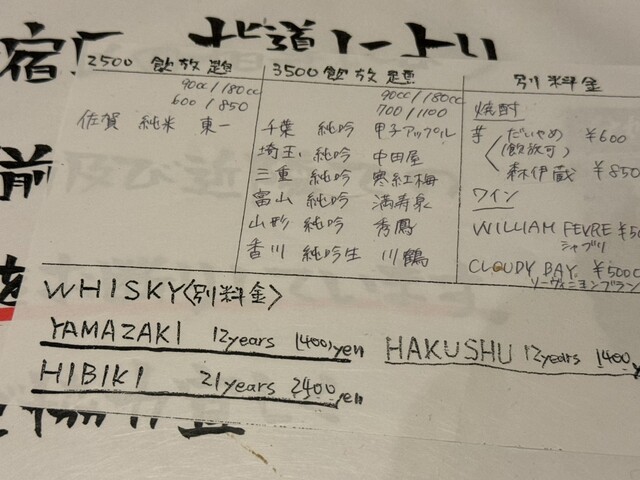 2500 飲放題
90cc/180cc
600/850
佐賀 純米 東一
3500飲放題
90cc/180cc
700/1100
千葉 純吟 甲子アップル
埼玉 純吟 中田屋
三重 純吟 寒紅梅
富山 純吟 満寿泉
山形 純吟 秀鳳
香川 純吟生 川鶴
別料金
焼酎
芋 だいやめ ¥600
(飲放可)
森伊蔵 ¥850
ワイン
WILLIAM FEVRE
シャブリ
CLOUDY BAY ¥5000
ソーヴィニヨンブラン
WHISKY〈別料金〉
YAMAZAKI 12years 1400yen
HAKUSHU 12years 1400
HIBIKI 21years 2400yen
宿
前